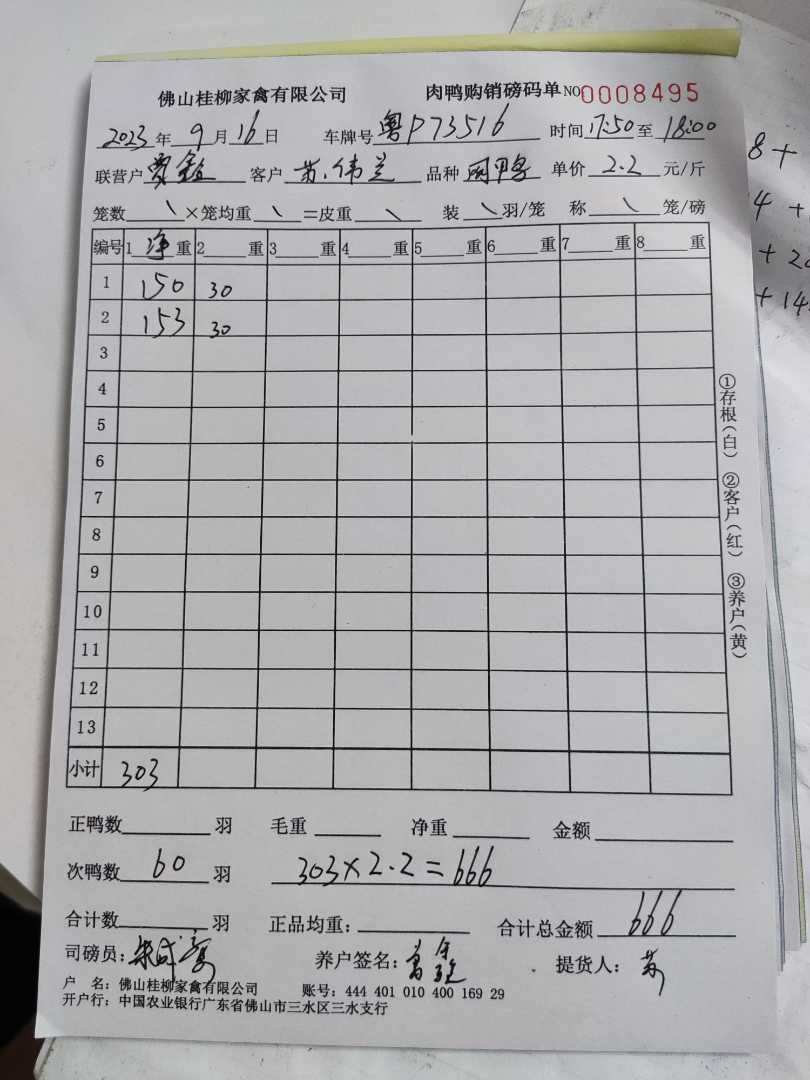 佛山桂柳家禽有限公司 肉鸭购销磅码单 NO0008495
2023年9月16日 车牌号粤P73516 时间17:50至18:00
联营户 客户 苏伟兰 品种 单价2.2元/斤
笼数\×笼均重\=皮重\ 装\羽/笼 称\笼/磅
编号 1净重 2重 3重 4重 5重 6重 7重 8重
1 150 30
2 153 30
3
4
5
6
7
8
9
10
11
12
13
小计 303
正鸭数 羽 毛重 净重 金额
次鸭数60羽 303×2.2=666
合计数 羽 正品均重: 合计总金额 666
司磅员: 养户签名: 提货人: 苏
户 名: 佛山桂柳家禽有限公司 账号: 444 401 010 400 169 29
开户行: 中国农业银行广东省佛山市三水区三水支行
①存根(白) ②客户(红) ③养户(黄)
8+
4+
+20
+14